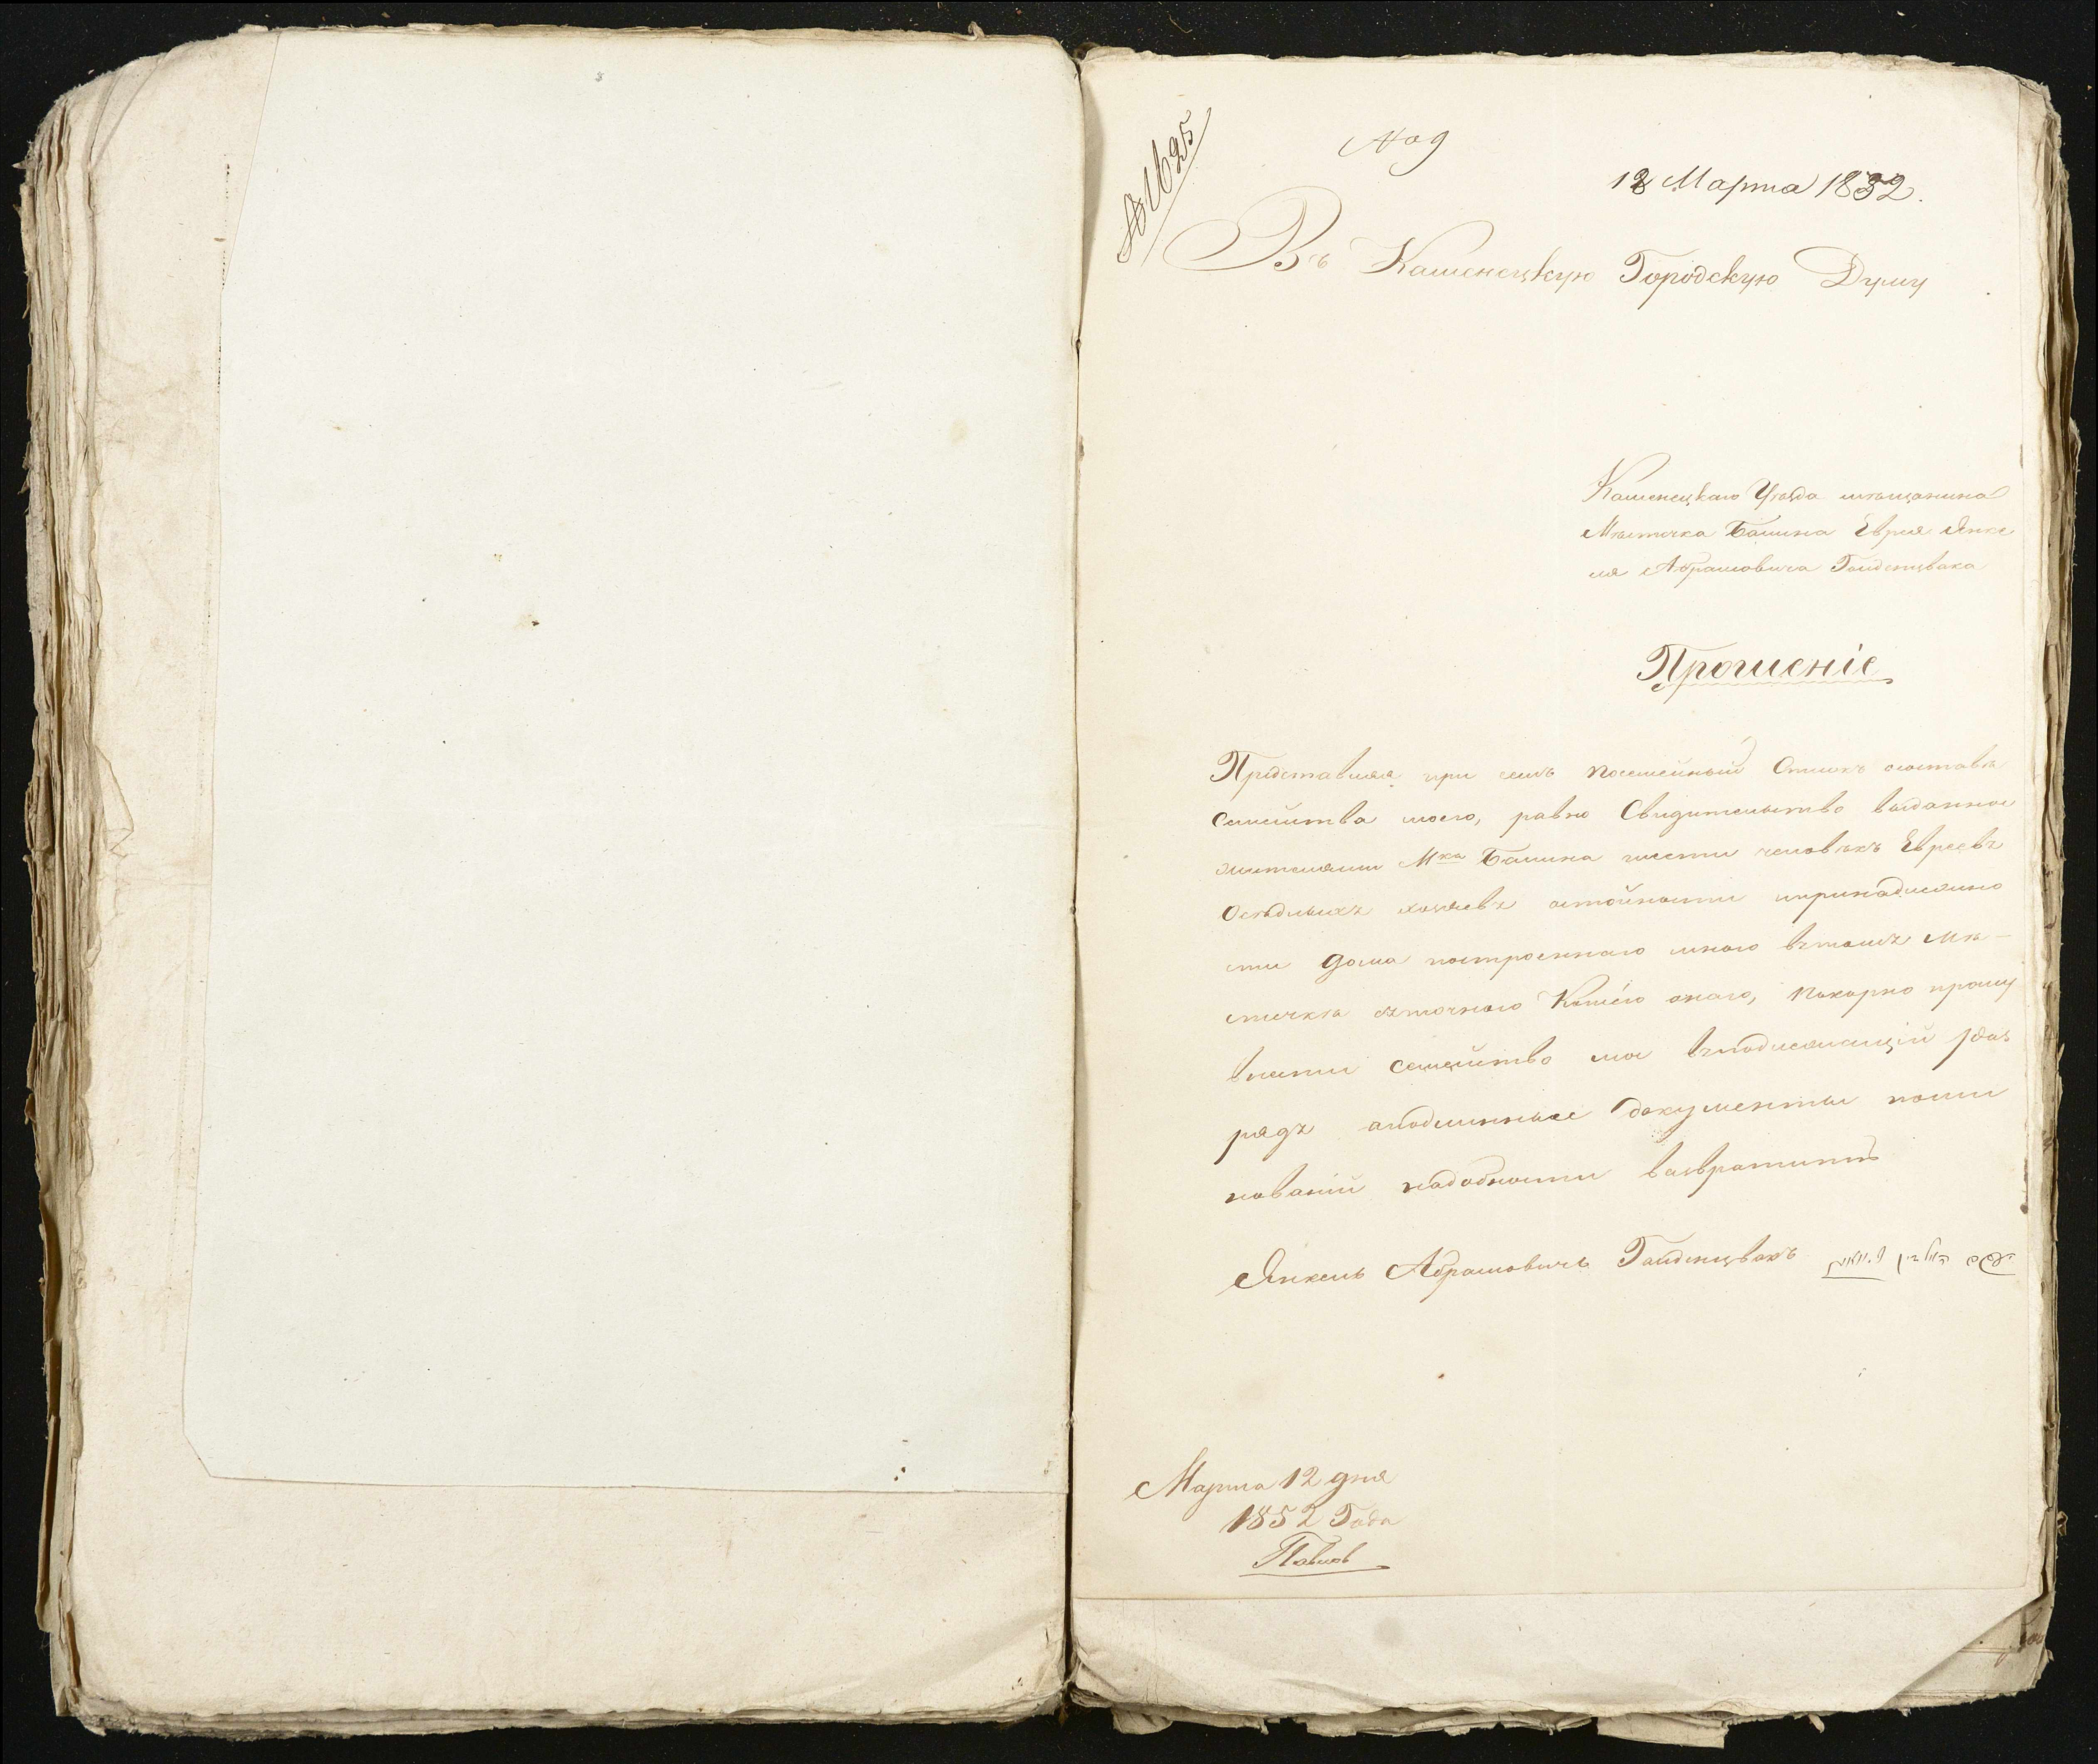 № 1625
№ 9
12 Марта 1852.
Въ Каменецкую Городскую Думу
Каменецкаго Уѣзда мѣщанина
Мѣстечка Балина Еврея Янке
ля Абрамовича
Прошеніе
Представляя при семъ посемейный Списокъ составѣ
Семейства моего, равно Свидительство выданное
жителями Мка Балина шести человѣкъ Евреевъ
Осѣдлыхъ хозяевъ остойности ипринадлежно
сти дома построеннаго мною втомъ мѣ-
стечкѣ оного, покорно прошу
внести Семейство мое вподлежащій раз
рядъ аподлинные документы поми
нованій надобности возвратить
Янкель Абрамовичъ
Марта 12 дня
1852 Года